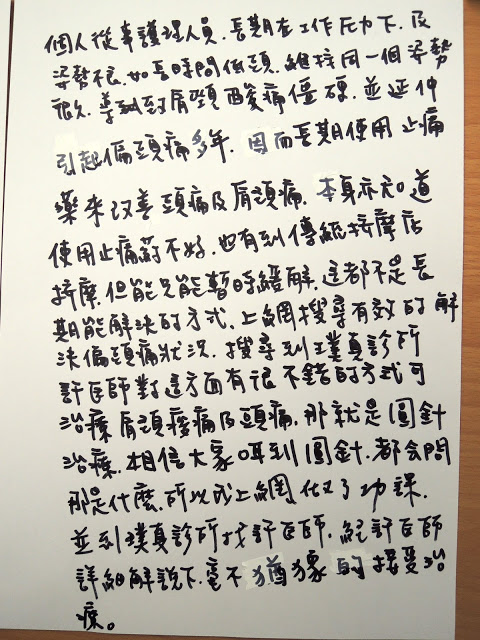 個人從事護理人員.長期在工作压力下.及
姿勢不良.如長時間低頭.維持同一個姿勢
很久.導致到肩頸酸痛僵硬.並延伸
引起偏頭痛多年.因而長期使用止痛
藥來改善頭痛及肩頸痛.本身亦知道
使用止痛葯不好.也有到傳統按摩店
按摩.但能只能暫時緩解.這都不是長
期能解決的方式.上網搜尋有效的解
決偏頭痛狀況.搜尋到璞真診所
許医師對這方面有很不錯的方式可
治療肩頸痠痛及頭痛.那就是圓針
治療.相信大家听到圓針.都会問
那是什麼.所以我上網做了功課.
並到璞真診所找許医師.經許医師
詳細解說下.毫不猶豫的接受治
療。